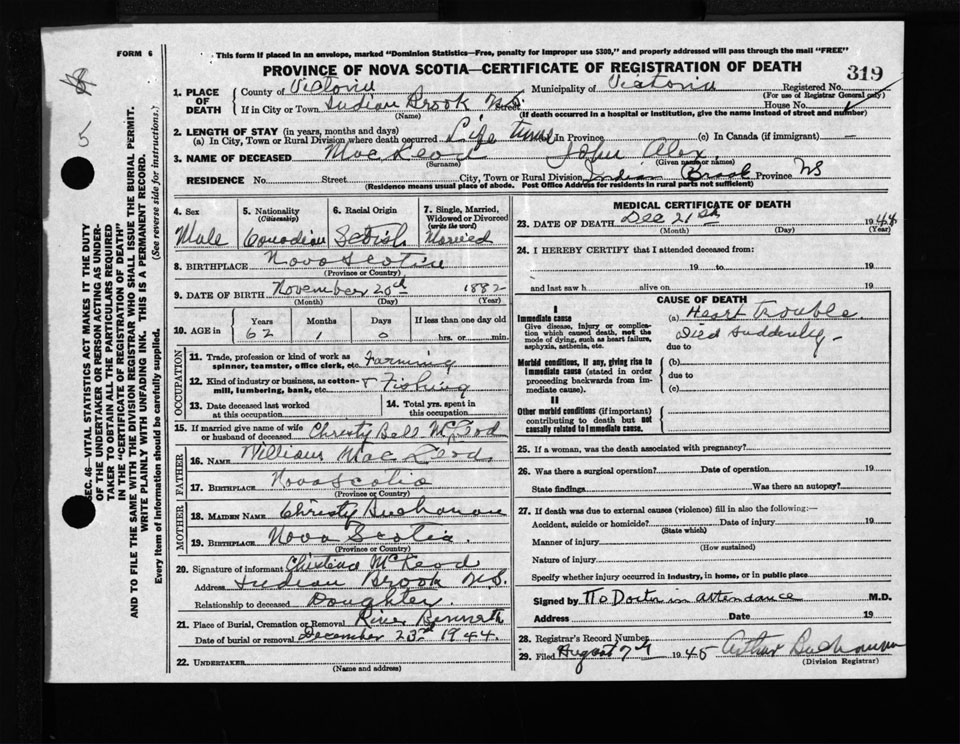 FORM 6
This form if placed in an envelope, marked "Dominion Statistics—Free, penalty for improper use $300," and properly addressed will pass through the mail "FREE"
PROVINCE OF NOVA SCOTIA—CERTIFICATE OF REGISTRATION OF DEATH
319
5
1. PLACE OF DEATH
County of Victoria Municipality of Victoria Registered No.
(For use of Registrar General only)
If in City or Town Indian Brook N.S. Street House No.
(Name) (If death occurred in a hospital or institution, give the name instead of street and number)
2. LENGTH OF STAY (in years, months and days)
(a) In City, Town or Rural Division where death occurred Life time In Province (c) In Canada (if immigrant) —
3. NAME OF DECEASED MacLeod John Alex
(Surname) (Given name or names)
RESIDENCE No. Street City, Town or Rural Division Indian Brook Province NS
(Residence means usual place of abode. Post Office Address for residents in rural parts not sufficient)
4. Sex
Male
5. Nationality (Citizenship)
Canadian
6. Racial Origin
Scotish
7. Single, Married, Widowed or Divorced (write the word)
Married
8. BIRTHPLACE Nova Scotia
(Province or Country)
9. DATE OF BIRTH November 20th 1882
(Month) (Day) (Year)
10. AGE in Years Months Days If less than one day old
62 1 0 hrs. or min.
OCCUPATION
11. Trade, profession or kind of work as spinner, teamster, office clerk, etc. Farming
12. Kind of industry or business, as cotton-mill, lumbering, bank, etc. + Fishing
13. Date deceased last worked at this occupation
14. Total yrs. spent in this occupation
15. If married give name of wife or husband of deceased Christy Bell McLeod
FATHER
16. NAME William MacLeod
17. BIRTHPLACE Nova Scotia
(Province or Country)
MOTHER
18. MAIDEN NAME Christy Buchanan
19. BIRTHPLACE Nova Scotia
(Province or Country)
20. Signature of informant Christena McLeod
Address Indian Brook N.S.
Relationship to deceased Daughter
21. Place of Burial, Cremation or Removal River Bennett
Date of burial or removal December 23rd 1944
22. UNDERTAKER
(Name and address)
MEDICAL CERTIFICATE OF DEATH
23. DATE OF DEATH Dec 21st 1944
(Month) (Day) (Year)
24. I HEREBY CERTIFY that I attended deceased from:
19 to 19
and last saw h alive on 19
CAUSE OF DEATH
I
Immediate cause
Give disease, injury or complication which caused death, not the mode of dying, such as heart failure, asphyxia, asthenia, etc.
(a) Heart trouble
Died suddenly
due to
Morbid conditions, if any, giving rise to immediate cause (stated in order proceeding backwards from immediate cause).
(b)
due to
(c)
II
Other morbid conditions (if important) contributing to death but not causally related to immediate cause.
25. If a woman, was the death associated with pregnancy?
26. Was there a surgical operation? Date of operation 19
State findings Was there an autopsy?
27. If death was due to external causes (violence) fill in also the following:—
Accident, suicide or homicide? Date of injury 19
(State which)
Manner of injury
(How sustained)
Nature of injury
Specify whether injury occurred in industry, in home, or in public place
Signed by No Doctor in attendance M.D.
Address Date 19
28. Registrar's Record Number
29. Filed August 7th 1945 Arthur Buchanan
(Division Registrar)
SEC. 46—VITAL STATISTICS ACT MAKES IT THE DUTY
OF THE UNDERTAKER OR PERSON ACTING AS UNDER-
TAKER TO OBTAIN ALL THE PARTICULARS REQUIRED
IN THE "CERTIFICATE OF REGISTRATION OF DEATH"
AND TO FILE THE SAME WITH THE DIVISION REGISTRAR WHO SHALL ISSUE THE BURIAL PERMIT.
WRITE PLAINLY WITH UNFADING INK. THIS IS A PERMANENT RECORD.
Every item of information should be carefully supplied. (See reverse side for instructions.)